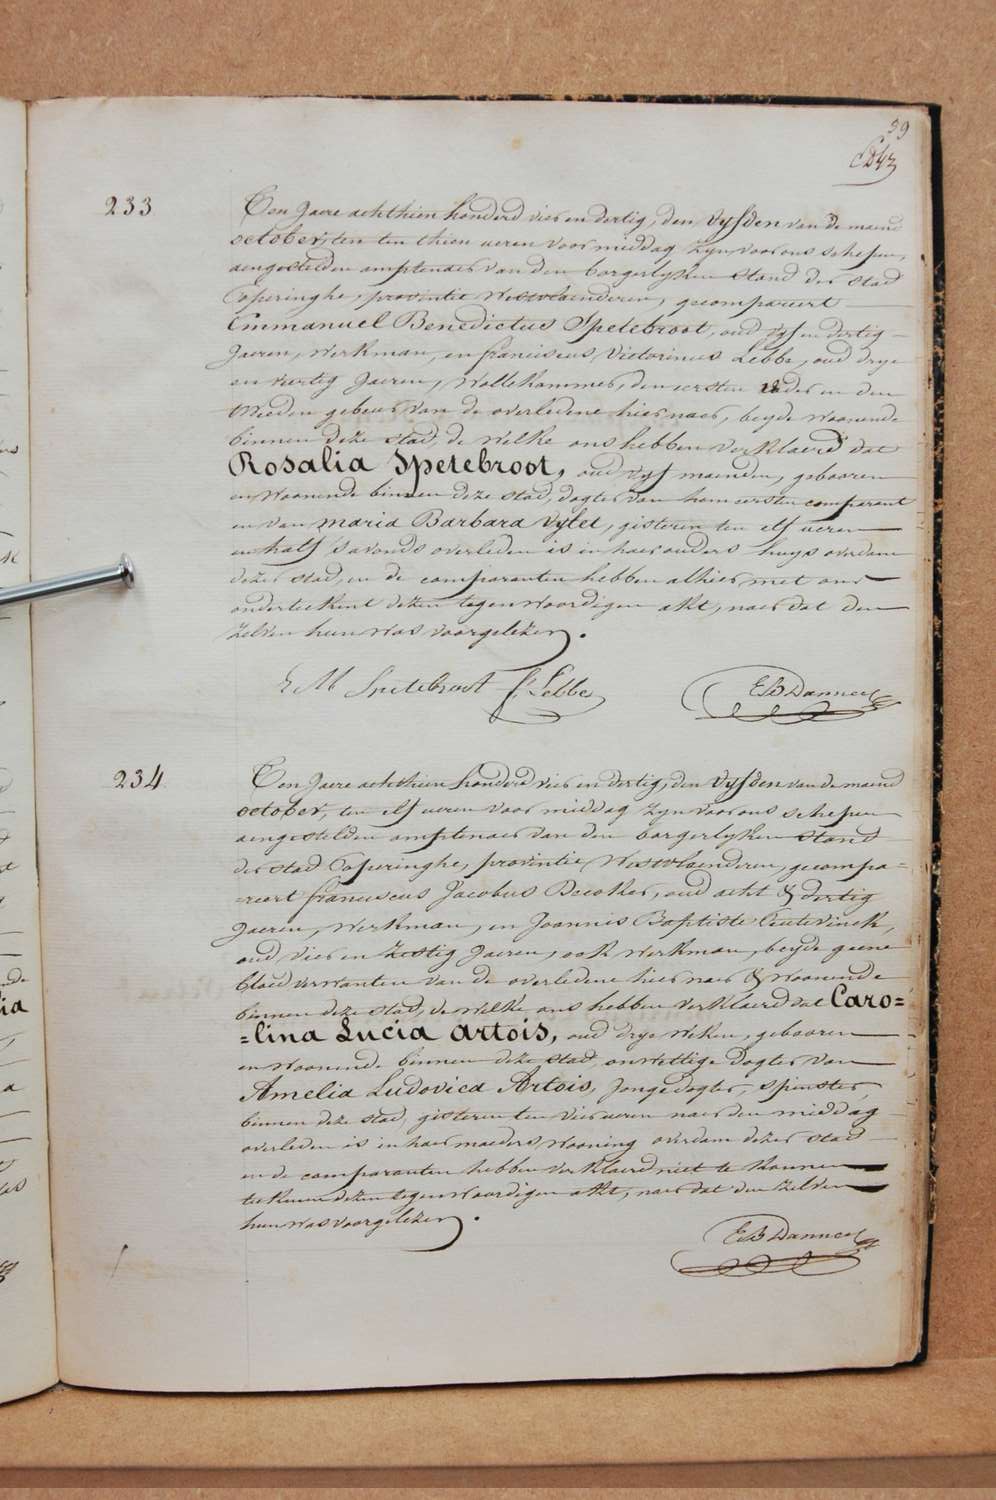 39
233
Ten Jaere achthien honderd vier en dertig, den vyfden van de maend
october, ten tien ueren voor middag zyn voor ons schepen,
aengestelden amptenaer van den borgerlyken stand der stad
Poperinghe, provintie Westvlaenderen, gecompareert
Emmanuel Benedictus Spetebroot, oud vyf en dertig
Jaeren, Werkman, en franciscus Victorinus Lebbe, oud drye
en veertig Jaeren, Wollekammer, den eersten vader en den
tweeden gebeur van de overledene hier naer, beyde woonende
binnen deze stad, de welke ons hebben verklaerd dat
Rosalia Spetebroot, oud vyf maenden, gebooren
en woonende binnen deze stad, dogter van hem eersten comparant
en van maria Barbara Vylet, gisteren ten elf ueren
en half s'avonds overleden is in haer ouders huys overdam
dezer stad, en de comparanten hebben alhier met ons
onderteekent dezen tegenwoordigen akt, naer dat den
zelven hun was voorgelezen.
E M Spetebroot F. Lebbe E B Danneel
234
Ten Jaere achthien honderd vier en dertig, den vyfden van de maend
october, ten elf ueren voor middag zyn voor ons schepen
aengestelden amptenaer van den borgerlyken stand
der stad Poperinghe, provintie Westvlaenderen, gecompa=
=reert franciscus Jacobus Decoker, oud acht & dertig
Jaeren, Werkman, en Joannis Baptiste
oud vier en zestig Jaeren, ook werkman, beyde geene
bloed verwanten van de overledene hier naer & woonende
binnen deze stad, de welke ons hebben verklaerd dat Caro=
=lina Lucia Artois, oud drye weken, gebooren
en woonende binnen deze stad, onwettige dogter van
Amelia Ludovica Artois, Jonge dogter, spinster,
binnen deze stad, gisteren ten vier ueren naer den middag
overleden is in haer moeders wooning overdam dezer stad
en de comparanten hebben verklaerd niet te konnen
teekenen dezen tegenwoordigen akt, naer dat den zelven
hun was voorgelezen.
E B Danneel